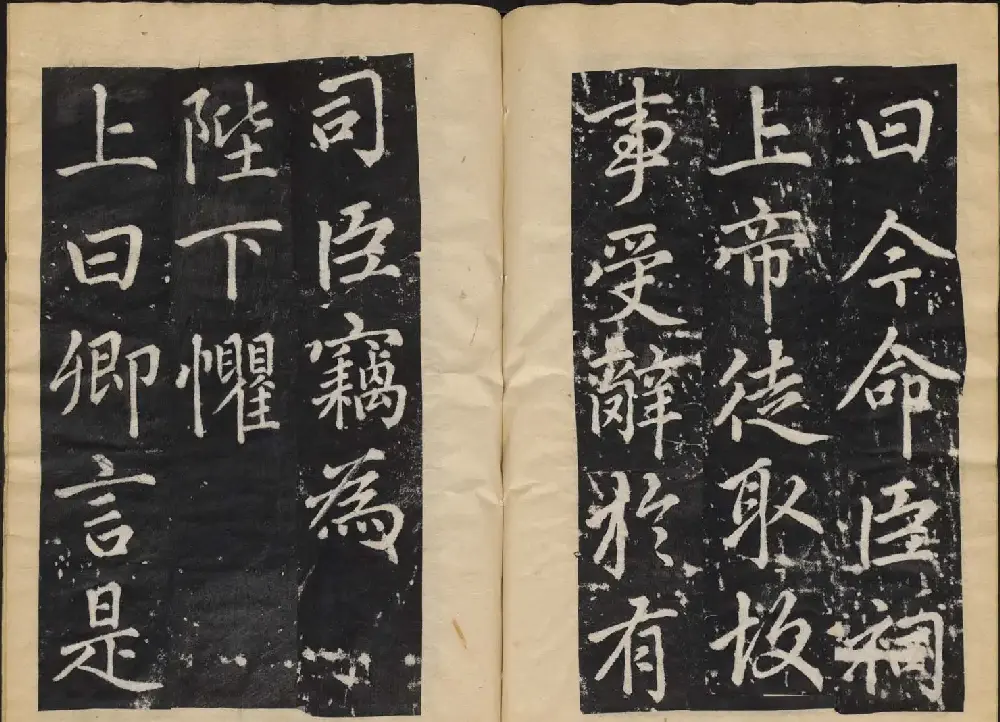 曰今命臣祠
上帝徒取故
事受辭於有
司臣竊為
陛下懼
上曰卿言是